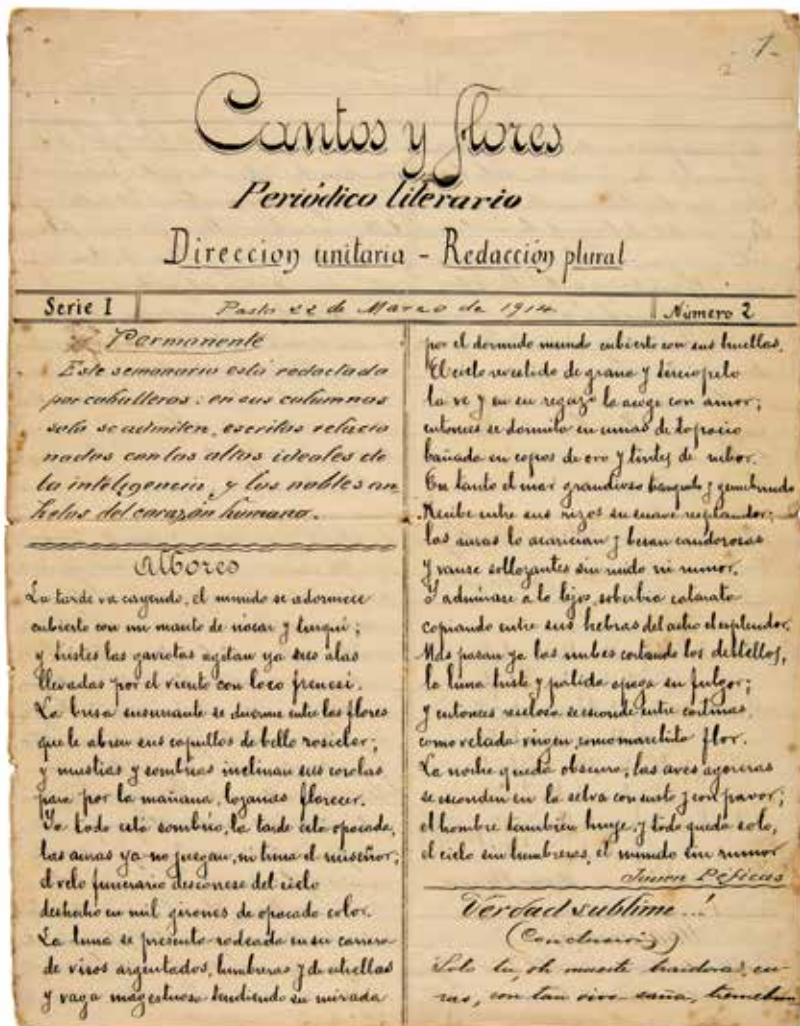 1-
Cantos y flores
Periódico literario
Direccion unitaria - Redacción plural
Serie I
Pasto 22 de Marzo de 1914
Número 2
Permanente
Este semanario está redactado
por caballeros: en sus columnas
solo se admiten, escritos relacio
nados con los altos ideales de
la inteligencia, y los nobles an
helos del corazón humano.
Albores
La tarde va cayendo, el mundo se adormece
cubierto con un manto de nacar y turquí;
y tristes las gaviotas agitan ya sus alas
llevadas por el viento con loco frenesí.
La brisa susurrante se duerme entre las flores
que le abren sus capullos de bello rosicler;
y mustias y sombrías inclinan sus corolas
para por la mañana, lozanas florecer.
Ya todo está sombrío, la tarde está opacada,
las auras ya no juegan, ni trina el ruiseñor;
el velo funerario desconese del cielo
deshecho en mil girones de opacado color.
La luna se presenta rodeada en su carrera
de visos argentados, lumbreras y de estrellas
y vaga magestuosa tendiendo su mirada
por el dormido mundo cubierto con sus huellas.
El cielo revestido de grana y terciopelo
la ve y en su regazo la acoge con amor;
entonces se dormita en cunas de topacio
bañada en copos de oro y tintes de rubor.
En tanto el mar grandioso tranquilo y gemebundo
Recibe entre sus rizos su suave resplandor;
las auras lo acarician y besan candorosas
Y vanse sollozantes sin ruido ni rumor.
Y admirase a lo lejos, soberbia catarata
copiando entre sus hebras del astro el esplendor.
Mas pasan ya las nubes cortando los destellos,
la luna triste y pálida apaga su fulgor;
y entonces recelosa se esconde entre cortinas,
como velada virgen, como marchita flor.
La noche queda obscura, las aves agoreras
se esconden en la selva con susto y con pavor;
el hombre también huye, y todo queda solo,
el cielo sin lumbreras, el mundo sin rumor
Verdad sublime...!
(Conclusión)
Solo tu, oh muerte traidora,
con tan viva saña,